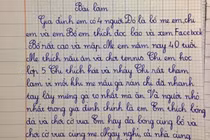 Bài làm
Gia đình em có 4 người Đó là bố mẹ em, chị
em và em Bố em thích đọc báo và xem Facebook
Bố rất cao và mập Mẹ em năm nay 40 tuổi
Mẹ thích nấu ăn và chơi tennis Chị em học
lớp 5 Chị thích hát và nhảy Chị rất thân
làm vì mỗi khi mẹ nấu gà rán chị ấy nhanh
tay lấy miếng gà to nhất mà ăn Và người nhỏ
nhất trong gia đình chính là em Em thích bóng
đá và chơi cờ vua Em hay đá bóng cùng bố và
chơi cờ vua cùng mẹ. Ngày nghỉ cả nhà cùng